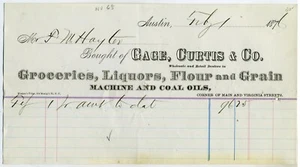 Austin, Feby 1 187
Mr. F M Hayter
Bought of GAGE, CURTIS & CO.
Wholesale and Retail Dealers in
Groceries, Liquors, Flour and Grain
MACHINE AND COAL OILS,
CORNER OF MAIN AND VIRGINIA STREETS.
1 to acct to dat